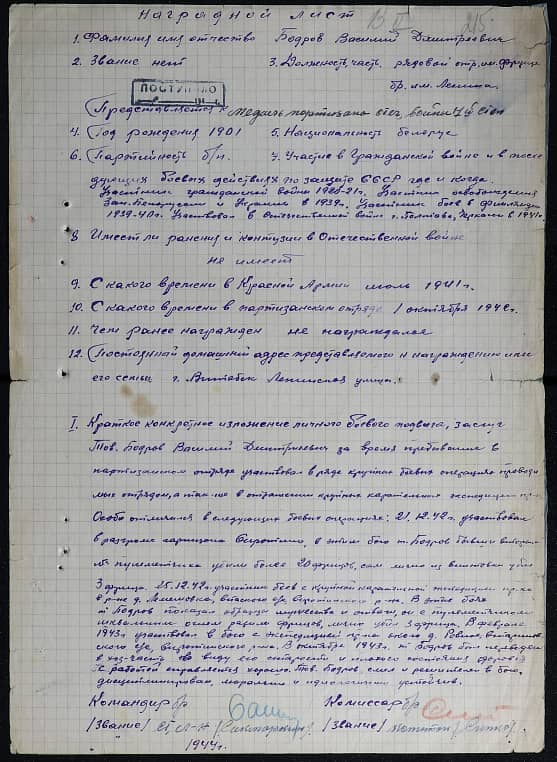 Наградной лист
1. Фамилия имя отчество Бодров Василий Дмитриевич
2. Звание нет 3. Должность, часть, рядовой отр. им. Фрунзе
бр. им. Ленина.
ПОСТУПИЛО
Представляется к медаль партизана отеч. войны
4. Год рождения 1901 5. Национальность белорус
6. Партийность б/п. 7. Участие в Гражданской войне и в после
дующих боевых действиях по защите СССР где и когда.
Участник гражданской войны Участник освобождения
Зап. Белоруссии и Украины в 1939г. Участник боев в финляндии
1939-40г. Участвовал в Отечественной войне г. Полтава, Черкассы в 1941г.
8. Имеет ли ранения и контузии в Отечественной войне
не имеет
9. С какого времени в Красной Армии июль 1941г.
10. С какого времени в партизанском отряде 1 октября 1942г.
11. Чем ранее награжден не награждался
12. Постоянный домашний адрес представляемого к награждению или
его семьи г. Витебск Ленинская улица.
I. Краткое конкретное изложение личного боевого подвига, заслуг
Тов. Бодров Василий Дмитриевич за время пребывания в
партизанском отряде участвовал в ряде крупных боевых операциях проводи
мых отрядом, а также в отражении крупных карательных экспедиций
Особо отличился в следующих боевых операциях: 21.12.42г. участвовал
в разгроме гарнизона Сиротино, в этом бою т. Бодров бывши
пулеметчика убили более 20 фрицев, сам лично из винтовки убил
3 фрица. 25.12.42г. участник боев с крупной карательной экспедиции
в р-не д. р-на. В этих боях
т. Бодров показал образцы мужества и отваги, он с пулеметчиком
огнем разили фрицев, лично убил 3 фрица. В феврале
1943г. участвовал в бою с экспедицией около д.
р-на. В октябре 1943г. т. Бодров был переведен
в хоз-часть по виду его старости и плохого состояния здоровья
с работой справляется хорошо. Тов. Бодров смел и решителен в бою,
дисциплинирован, морально и идеологически устойчив.
Командир бр Комиссар бр
/Звание/ ст. л-т /Звание/
1944г.